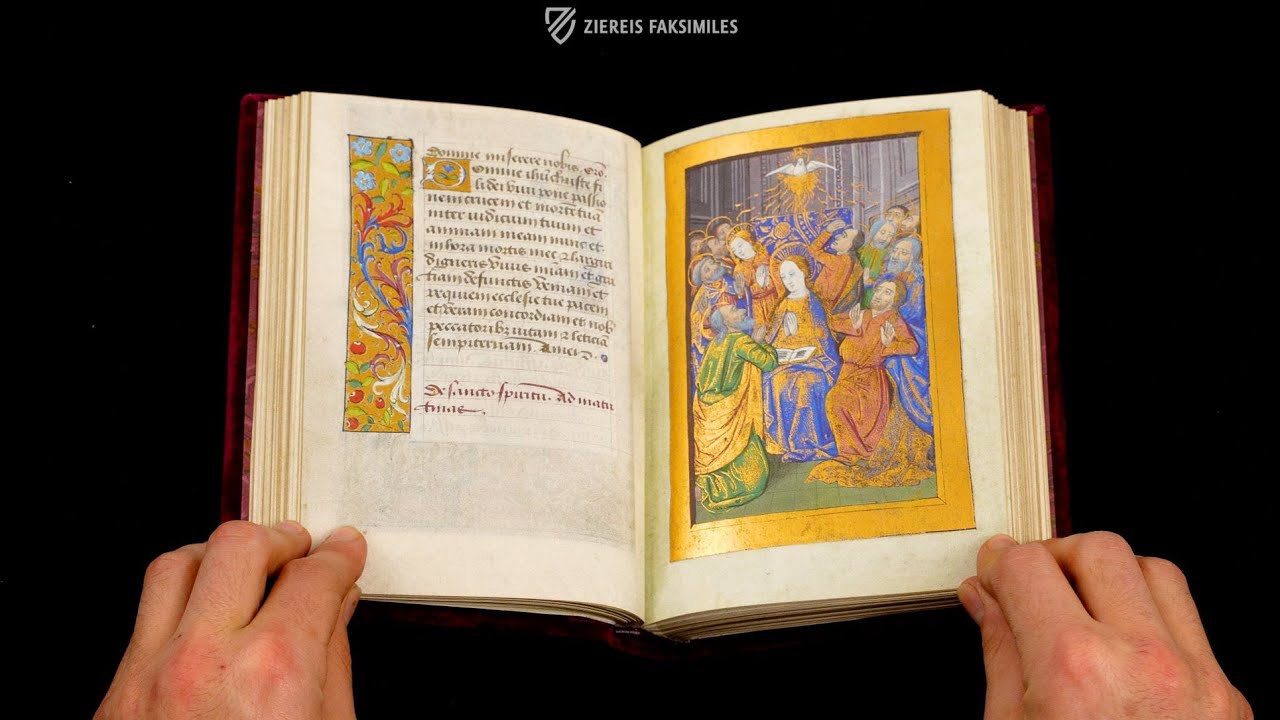 ZIEREIS FAKSIMILES
Domine miserere nobis. Oro.
Domine ihu christe fi
li dei vivi pone passio
nem crucem et mortē tuā
inter iudicium tuum et
animam meam nunc et
in hora mortis mee & largiri
digneris vivis mīam et gra
tiam defunctis veniam et
requiem ecclesie tue pacem
et veram concordiam et nob
peccatoribꝫ vitam & leticiā
sempiternam. Amen.
De sancto spiritu. Ad matu
tinas.